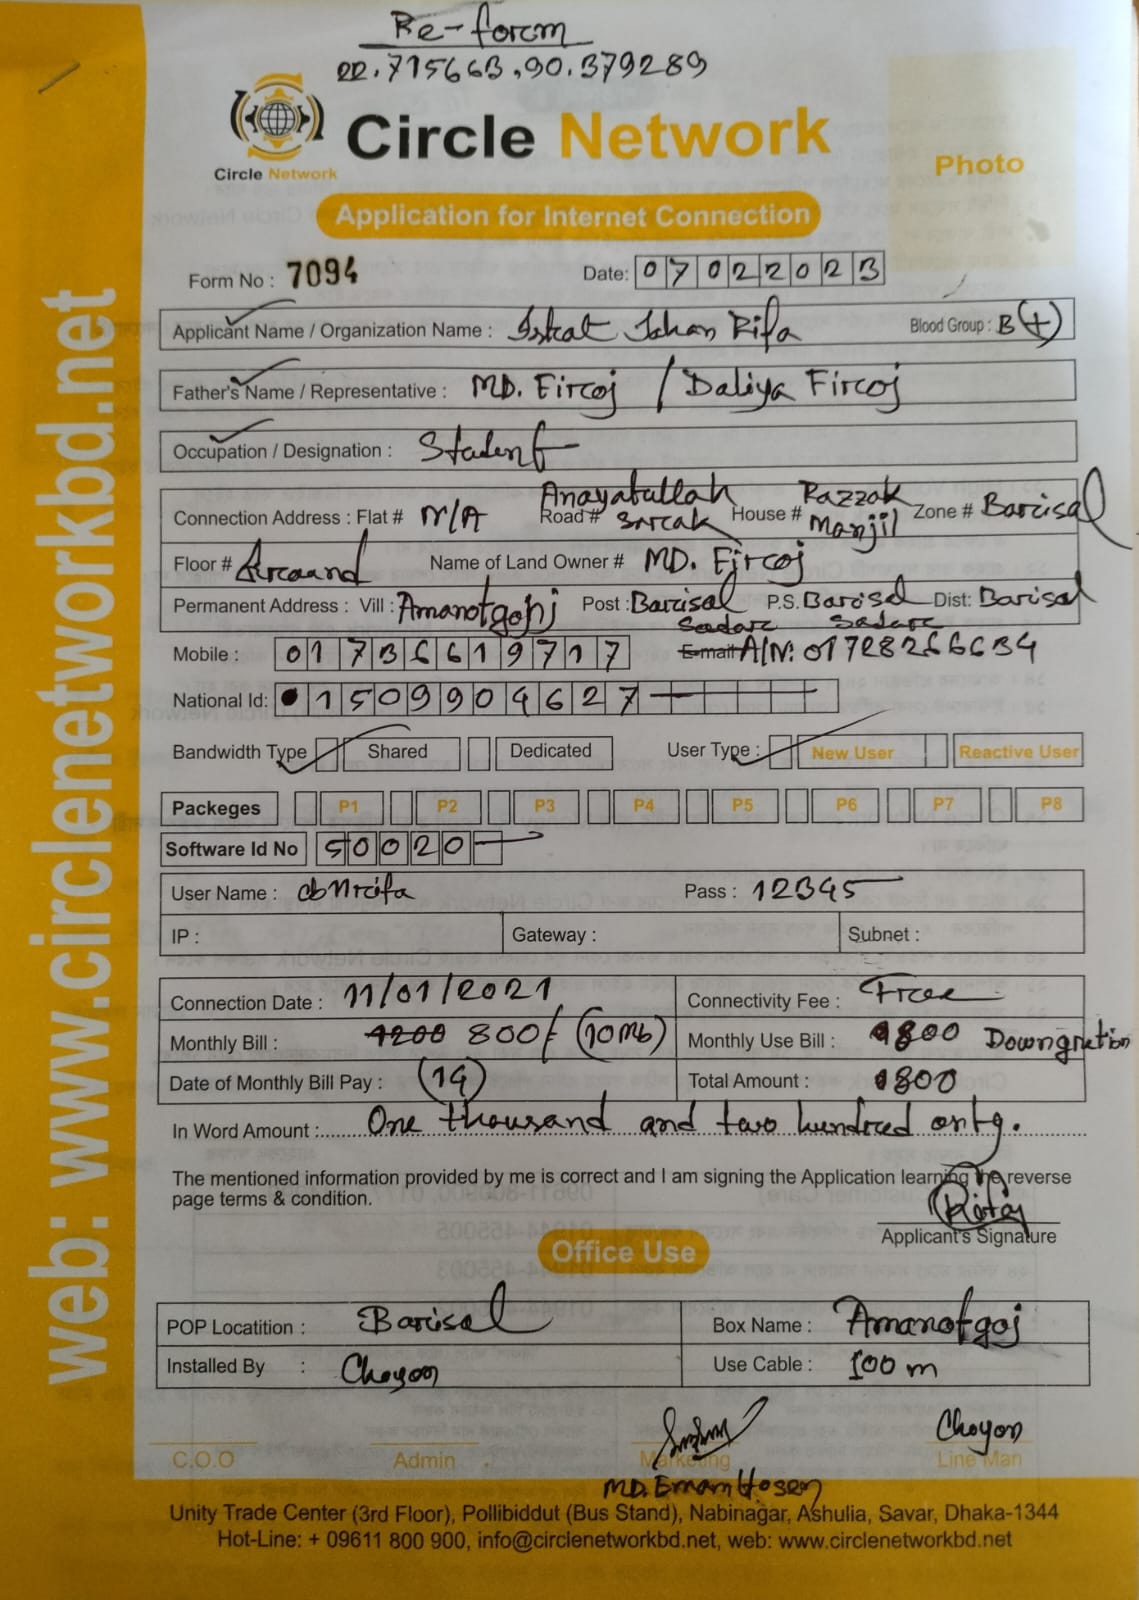 Re-form
22.715663,90.379289
Circle Network
Circle Network
Photo
Application for Internet Connection
Form No : 7094 Date: 07022023
Applicant Name / Organization Name : Israt Jahan Rifa Blood Group : B(+)
Father's Name / Representative : MD. Firoj / Daliya Firoj
Occupation / Designation : Student
Connection Address : Flat # N/A Road # Anayatullah Sarcak House # Razzak Manjil Zone # Barisal
Floor # Ground Name of Land Owner # MD. Firoj
Permanent Address : Vill : Amanotgonj Post : Barisal Sadar P.S. Barisal Sadar Dist: Barisal
Mobile : 01736619717 E-mail A/N: 01728266634
National Id: 1509904627
Bandwidth Type Shared Dedicated User Type : New User Reactive User
Packeges P1 P2 P3 P4 P5 P6 P7 P8
Software Id No 50020
User Name : cbnrifa Pass : 12345
IP : Gateway : Subnet :
Connection Date : 11/01/2021 Connectivity Fee : Free
Monthly Bill : 1200 800/- (10Mb) Monthly Use Bill : 800 Downgration
Date of Monthly Bill Pay : (14) Total Amount : 800
In Word Amount : One thousand and two hundred only.
The mentioned information provided by me is correct and I am signing the Application learning the reverse
page terms & condition.
Rifa
Applicant's Signature
Office Use
POP Locatition : Barisal Box Name : Amanotgoj
Installed By : Choyon Use Cable : 100 m
Choyon
C.O.O Admin Marketing Line Man
MD. Emam Hosen
Unity Trade Center (3rd Floor), Pollibiddut (Bus Stand), Nabinagar, Ashulia, Savar, Dhaka-1344
Hot-Line: + 09611 800 900, info@circlenetworkbd.net, web: www.circlenetworkbd.net
web: www.circlenetworkbd.net